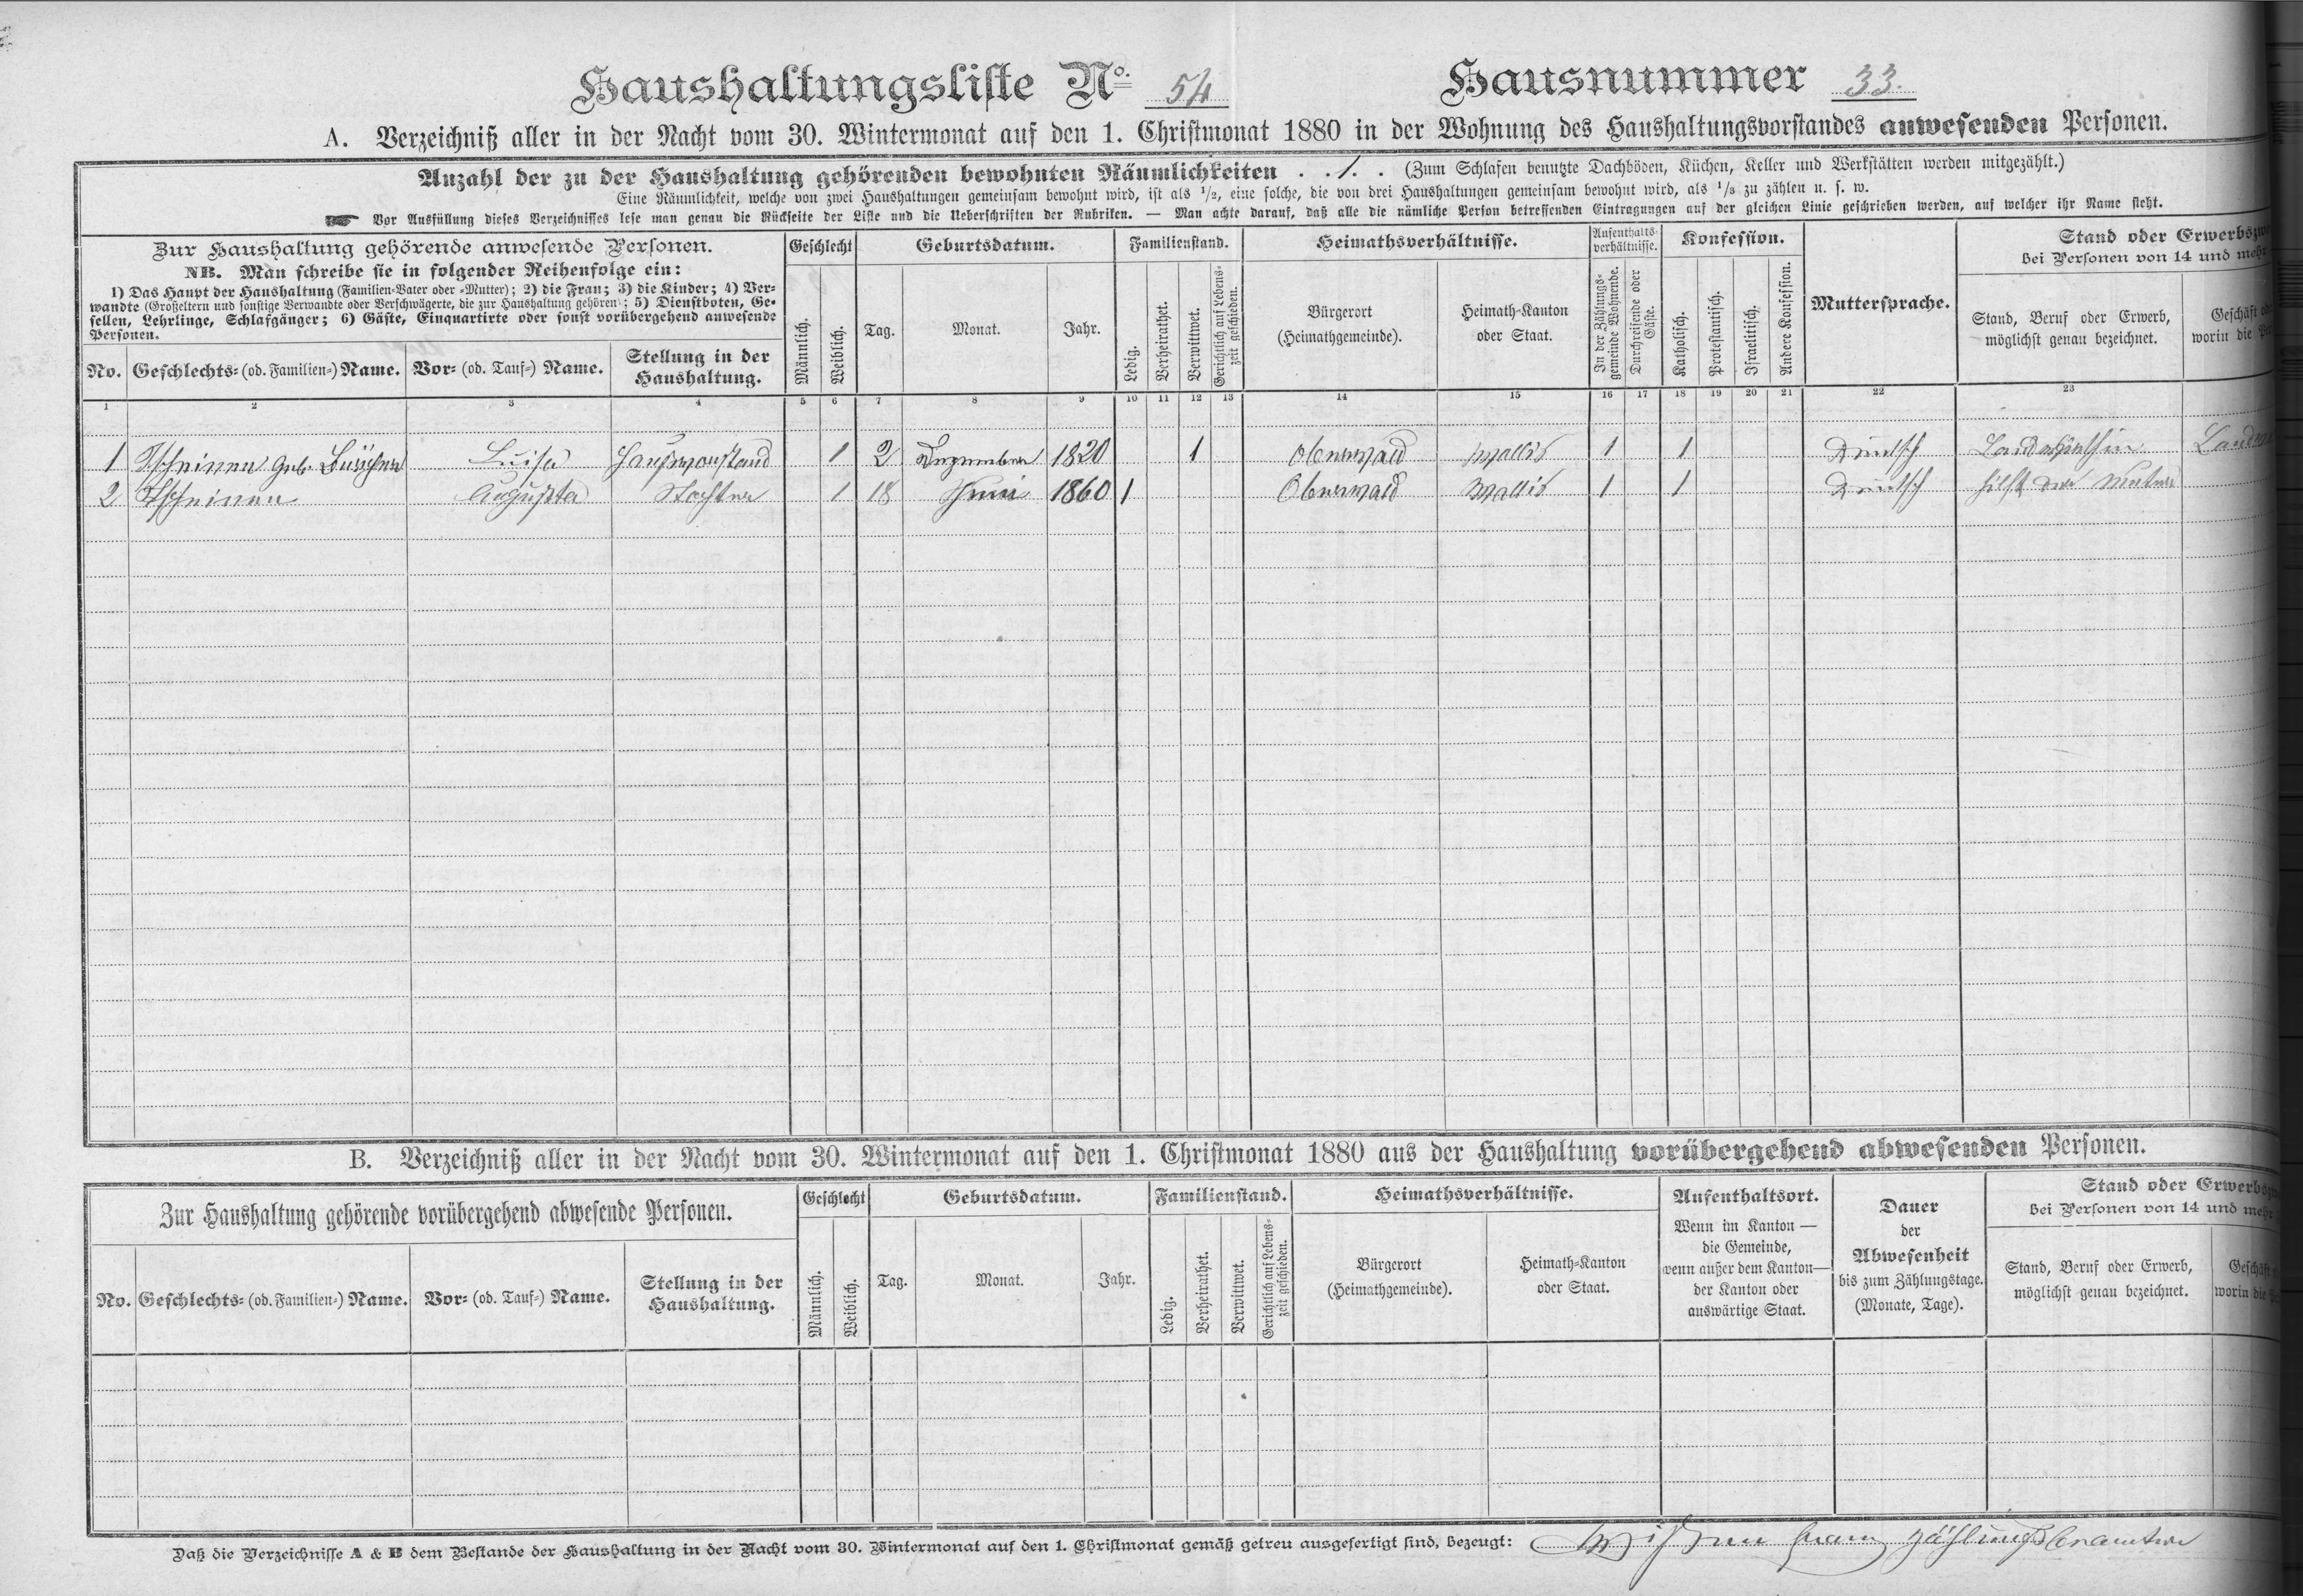 Haushaltungsliste No. 54
Hausnummer 33.
A. Verzeichniß aller in der Nacht vom 30. Wintermonat auf den 1. Christmonat 1880 in der Wohnung des Haushaltungsvorstandes anwesenden Personen.
Anzahl der zu der Haushaltung gehörenden bewohnten Räumlichkeiten . . 1. . (Zum Schlafen benutzte Dachböden, Küchen, Keller und Werkstätten werden mitgezählt.)
Eine Räumlichkeit, welche von zwei Haushaltungen gemeinsam bewohnt wird, ist als 1/2, eine solche, die von drei Haushaltungen gemeinsam bewohnt wird, als 1/3 zu zählen u. s. w.
Vor Ausfüllung dieses Verzeichnisses lese man genau die Rückseite der Liste und die Ueberschriften der Rubriken. — Man achte darauf, daß alle die nämliche Person betreffenden Eintragungen auf der gleichen Linie geschrieben werden, auf welcher ihr Name steht.
Zur Haushaltung gehörende anwesende Personen.
NB. Man schreibe sie in folgender Reihenfolge ein:
1) Das Haupt der Haushaltung (Familien-Vater oder -Mutter); 2) die Frau; 3) die Kinder; 4) Ver-
wandte (Großeltern und sonstige Verwandte oder Verschwägerte, die zur Haushaltung gehören); 5) Dienstboten, Ge-
sellen, Lehrlinge, Schlafgänger; 6) Gäste, Einquartirte oder sonst vorübergehend anwesende
Personen.
No. Geschlechts- (od. Familien-) Name. Vor- (od. Tauf-) Name. Stellung in der
Haushaltung.
Geschlecht
Männlich. Weiblich.
Geburtsdatum.
Tag. Monat. Jahr.
Familienstand.
Ledig. Verheirathet. Verwittwet. Gerichtlich auf Lebens-
zeit geschieden.
Heimathsverhältnisse.
Bürgerort
(Heimathgemeinde).
Heimath-Kanton
oder Staat.
Aufenthalts-
verhältnisse.
In der Zählungs-
gemeinde Wohnende.
Durchreisende oder
Gäste.
Konfession.
Katholisch. Protestantisch. Israelitisch. Andere Konfession.
Muttersprache.
Stand oder
bei Personen von 14 und
Stand, Beruf oder Erwerb,
möglichst genau bezeichnet.
Geschäft
worin die
1 2 3 4 5 6 7 8 9 10 11 12 13 14 15 16 17 18 19 20 21 22 23
1 Tscheinen geb. Luisa Hausvorstand 1 2 Dezember 1820 1 Oberwald Wallis 1 1 Deutsch Landwirthin
2 Tscheinen Augusta Tochter 1 18 Juni 1860 1 Oberwald Wallis 1 1 Deutsch hilft der Mutter
B. Verzeichniß aller in der Nacht vom 30. Wintermonat auf den 1. Christmonat 1880 aus der Haushaltung vorübergehend abwesenden Personen.
Zur Haushaltung gehörende vorübergehend abwesende Personen.
No. Geschlechts- (od. Familien-) Name. Vor- (od. Tauf-) Name. Stellung in der
Haushaltung.
Geschlecht
Männlich. Weiblich.
Geburtsdatum.
Tag. Monat. Jahr.
Familienstand.
Ledig. Verheirathet. Verwittwet. Gerichtlich auf Lebens-
zeit geschieden.
Heimathsverhältnisse.
Bürgerort
(Heimathgemeinde).
Heimath-Kanton
oder Staat.
Aufenthaltsort.
Wenn im Kanton —
die Gemeinde,
wenn außer dem Kanton—
der Kanton oder
auswärtige Staat.
Dauer
der
Abwesenheit
bis zum Zählungstage.
(Monate, Tage).
Stand oder
bei Personen von 14 und
Stand, Beruf oder Erwerb,
möglichst genau bezeichnet.
worin die
Daß die Verzeichnisse A & B dem Bestande der Haushaltung in der Nacht vom 30. Wintermonat auf den 1. Christmonat gemäß getreu ausgefertigt sind, bezeugt: Zählungsbeamter